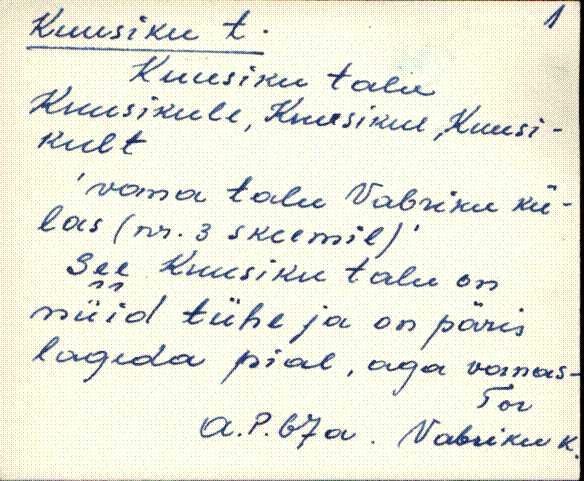 Kuusiku t. 1
Kuusiku talu
Kuusikule, Kuusikul, Kuusi-
kult
'vana talu Vabriku kü-
las (nr. 3 skeemil)'
See Kuusiku talu on
nüid tühe ja on päris
lageda pial, aga vanas-
Tor
A.P. 67 a. Vabriku k.